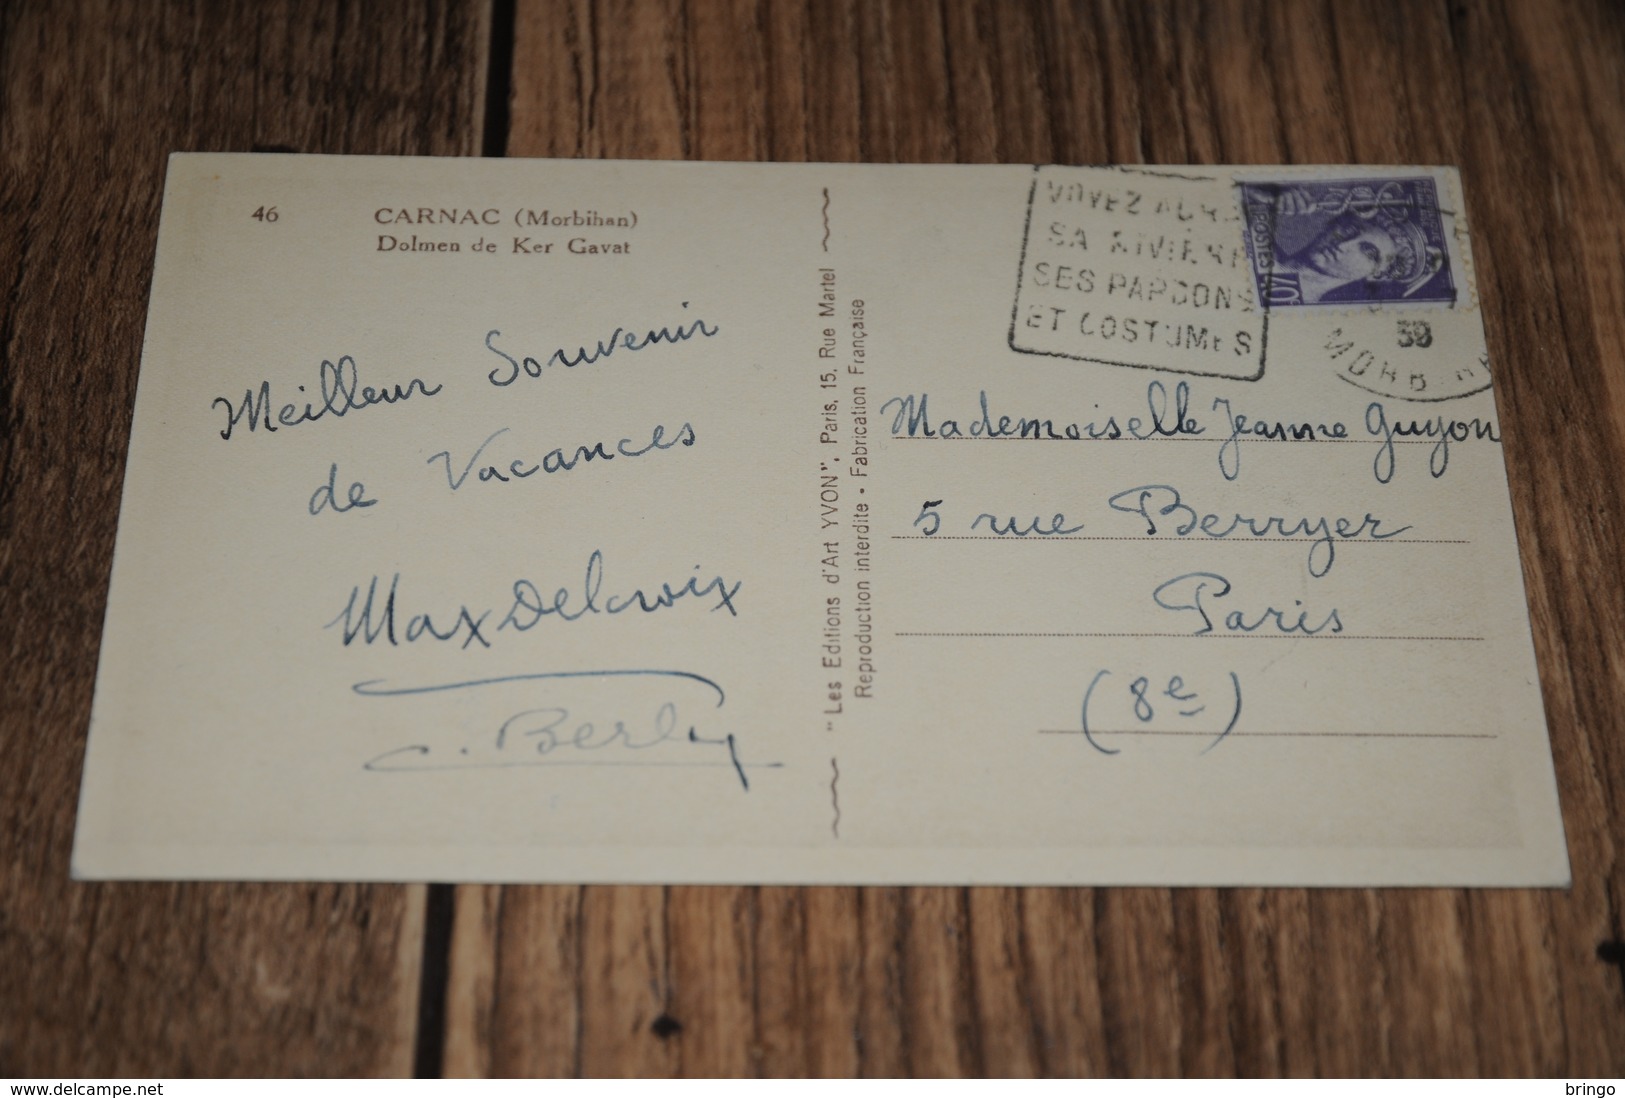 46 CARNAC (Morbihan)
Dolmen de Ker Gavat
Meilleur Souvenir
de Vacances
Max Delacroix
C.
"Les Editions d'Art YVON", Paris, 15, Rue Martel
Reproduction interdite - Fabrication Française
VOYEZ
SA RIVIERE
SES PARDONS
ET COSTUMES
POSTES
40c
39
MORBIHAN
Mademoiselle Jeanne Guyon
5 rue Berryer
Paris
(8e)
www.delcampe.net
bringo